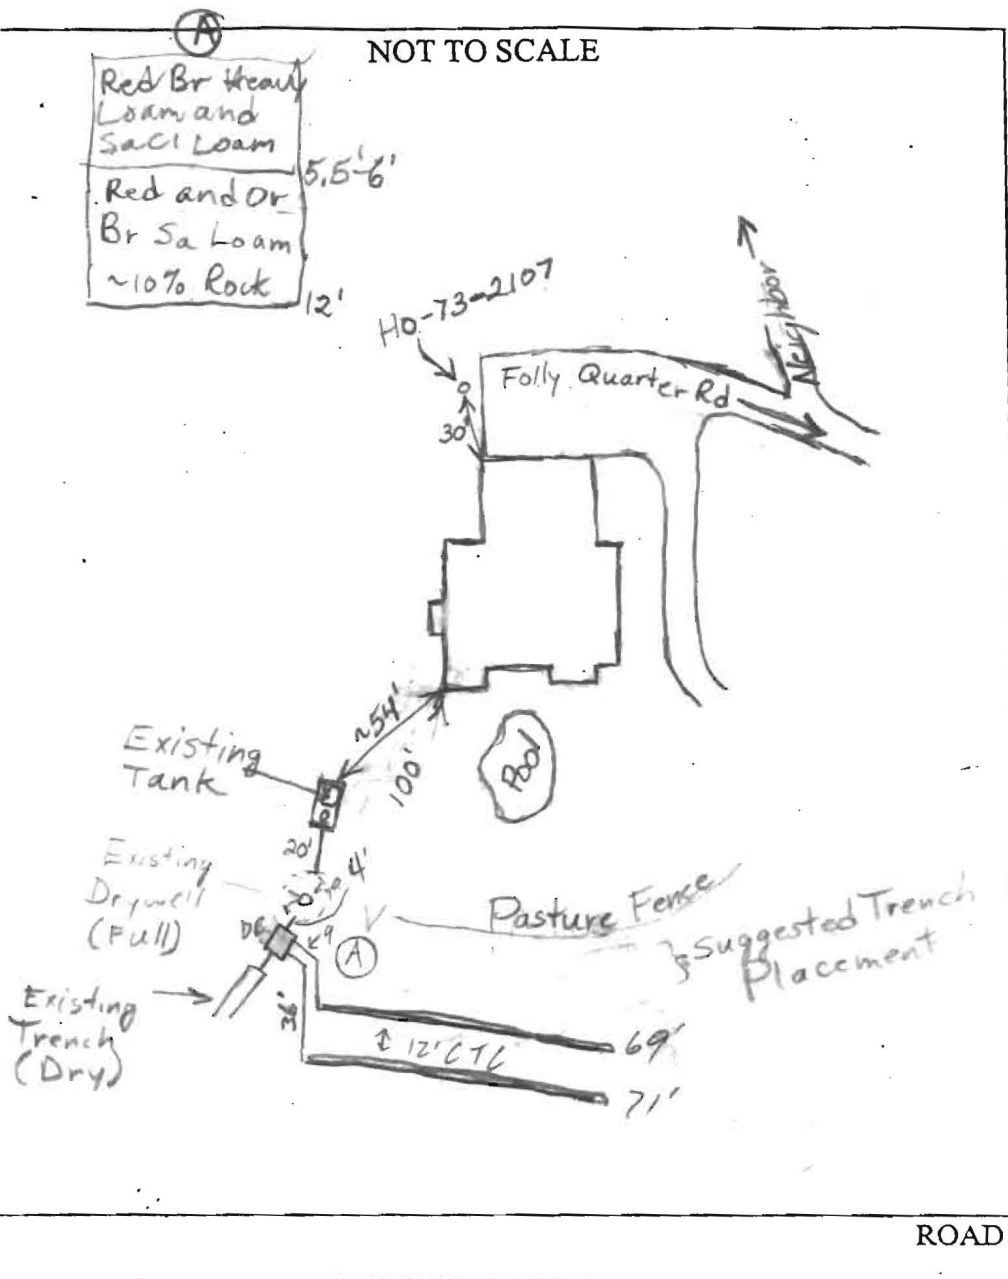 A
NOT TO SCALE
Red Br Heavy
Loam and
SaCl Loam
5.5'-6'
Red and Or
Br Sa Loam
~10% Rock
12'
HO-73-2107
30'
Folly Quarter Rd
Neighbor
~54'
100'
Pool
Existing
Tank
20'
4'
Existing
Drywell
(Full)
DB
9'
A
Pasture Fence
Suggested Trench
Placement
Existing
Trench
(Dry)
36'
69'
12' CTC
71'
ROAD